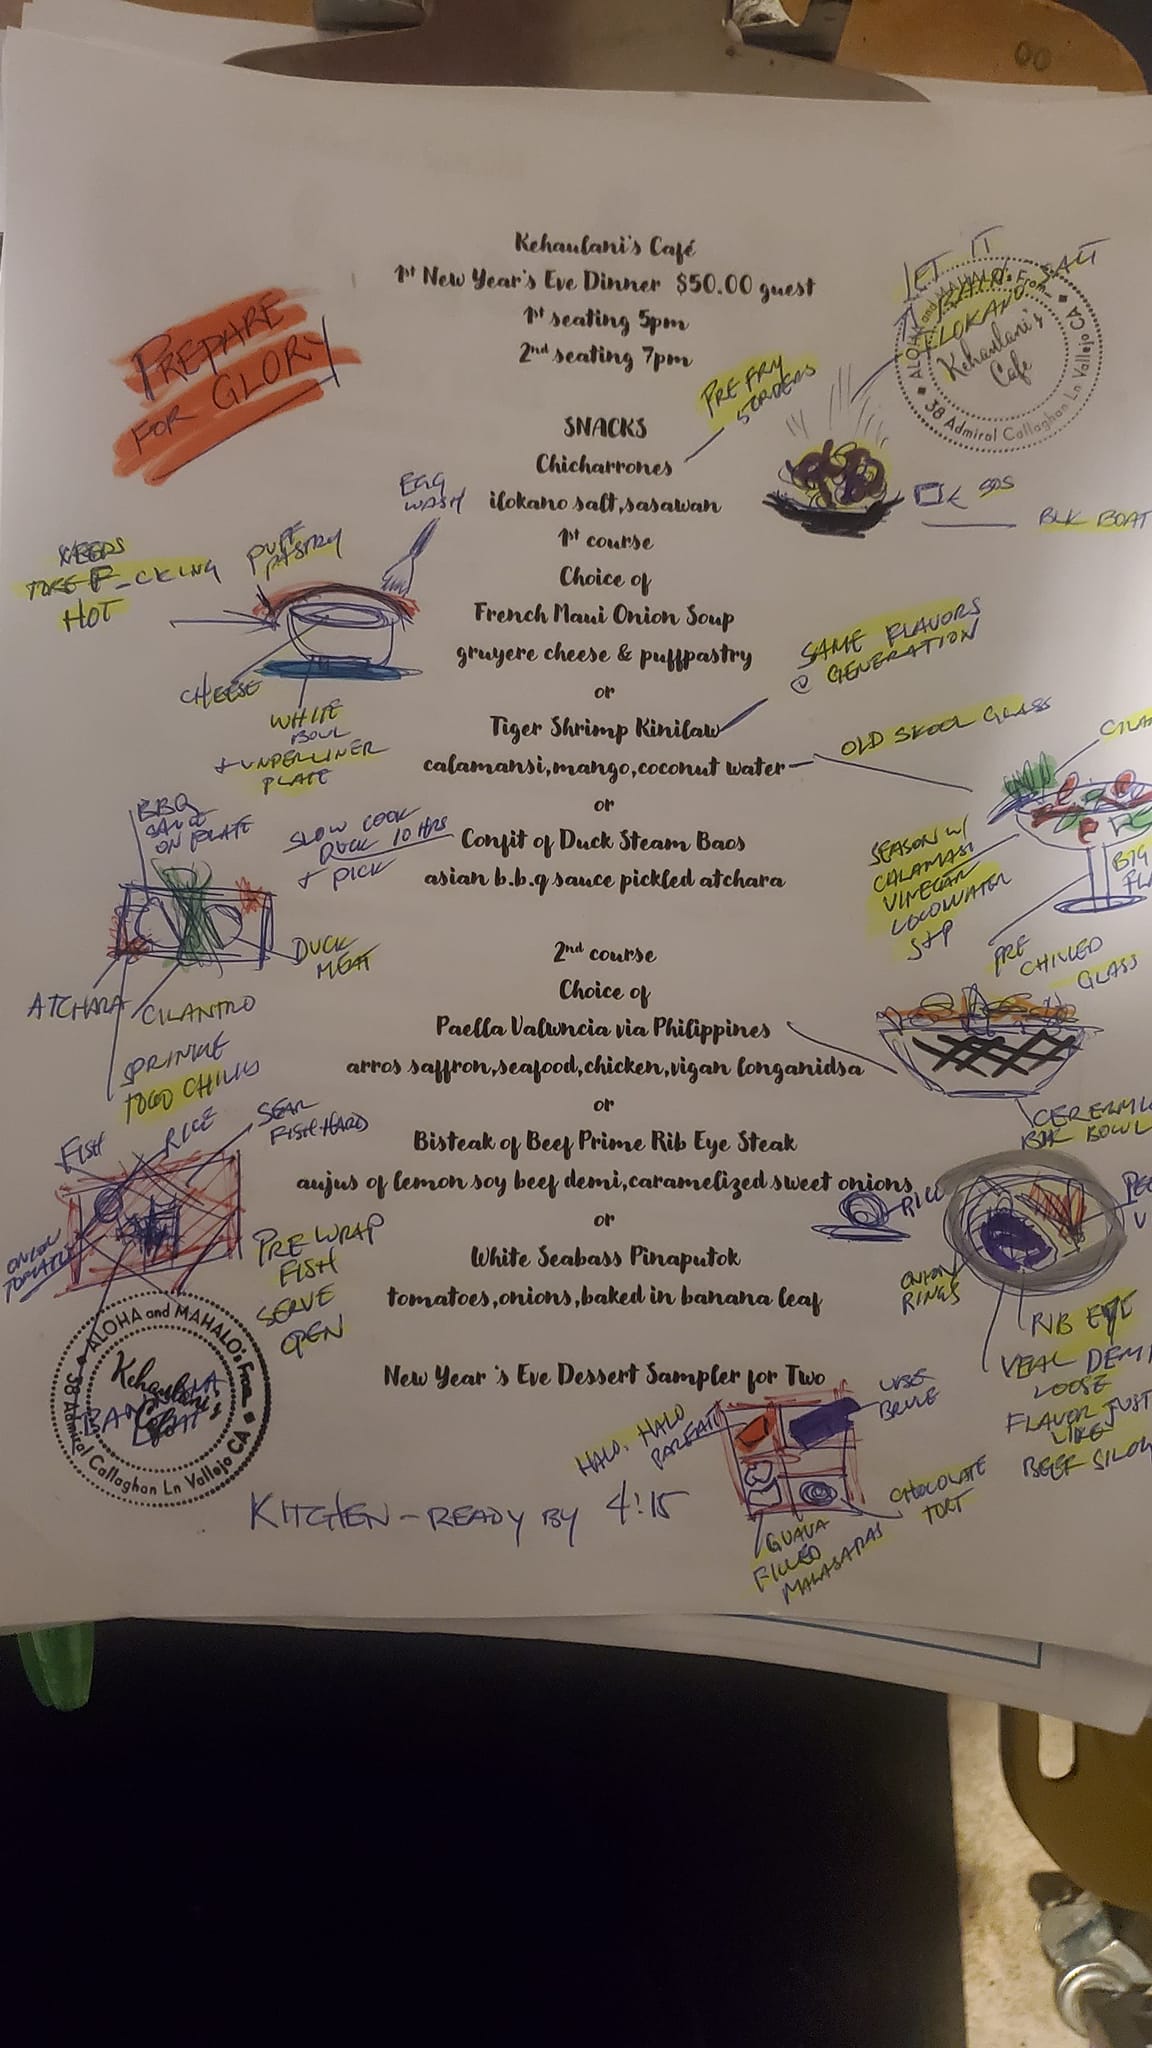 Kehaulani's Café
1st New Year's Eve Dinner $50.00 guest
1st seating 5pm
2nd seating 7pm
PREPARE
FOR GLORY
LET IT
RAIN
ILOKANO SALT
ALOHA and MAHALO's From
Kehaulani's
Cafe
38 Admiral Callaghan Ln Vallejo CA
PRE FRY
5 ORDERS
SNACKS
Chicharrones
ilokano salt,sasawan
BLK BOAT
EGG
WASH
PUFF
PASTRY
NEEDS
F-CKING
HOT
CHEESE
WHITE
BOWL
+ UNDERLINER
PLATE
1st course
Choice of
French Maui Onion Soup
gruyere cheese & puffpastry
or
Tiger Shrimp Kinilaw
calamansi,mango,coconut water
or
Confit of Duck Steam Baos
asian b.b.q sauce pickled atchara
SAME FLAVORS
@ GENERATION
OLD SKOOL GLASS
SEASON W/
CALAMASI
VINEGAR
COCOWATER
S+P
PRE
CHILLED
GLASS
BBQ
SAUCE
ON PLATE
SLOW COOK
DUCK 10 HRS
+ PICK
DUCK
MEAT
ATCHARA
CILANTRO
SPRINKLE
TOGO CHILIS
2nd course
Choice of
Paella Valwncia via Philippines
arros saffron,seafood,chicken,vigan longanidsa
or
Bisteak of Beef Prime Rib Eye Steak
aujus of lemon soy beef demi,caramelized sweet onions
or
White Seabass Pinaputok
tomatoes,onions,baked in banana leaf
BOWL
FISH
RICE
SEAR
FISH HARD
ONION
TOMATO
PRE WRAP
FISH
SERVE
OPEN
RICE
ONION
RINGS
RIB EYE
VEAL DEMI
LOOSE
FLAVOR JUST
LIKE
BEEF
ALOHA and MAHALO's From
Kehaulani's
Cafe
38 Admiral Callaghan Ln Vallejo CA
BANANA
New Year 's Eve Dessert Sampler for Two
HALO, HALO
PARFAIT
UBE
BRULE
CHOCOLATE
TORT
GUAVA
FILLED
MALASADAS
KITCHEN - READY BY 4:15